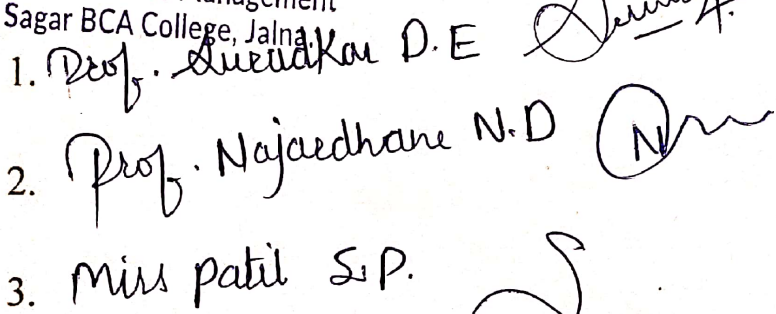 Sagar BCA College, Jalna.
1. Prof. D.E
2. Prof. Najardhane N.D
3. Miss patil S.P.